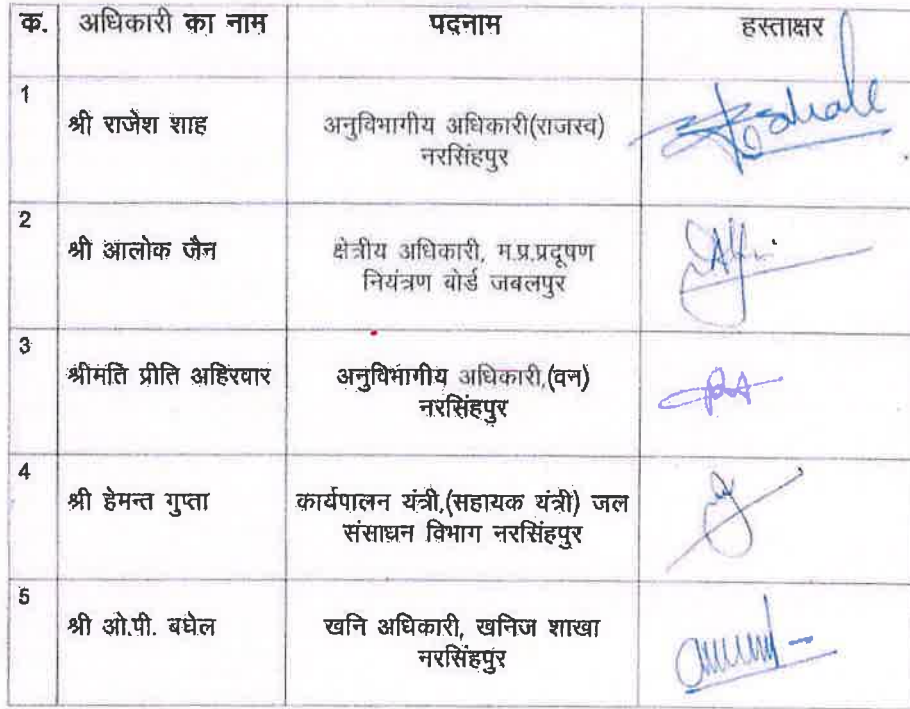 क. अधिकारी का नाम पदनाम हस्ताक्षर
1
श्री राजेश शाह अनुविभागीय अधिकारी(राजस्व)
नरसिंहपुर
2
श्री आलोक जैन क्षेत्रीय अधिकारी, म.प्र.प्रदूषण
नियंत्रण बोर्ड जबलपुर
3
श्रीमति प्रीति अहिरवार अनुविभागीय अधिकारी,(वन)
नरसिंहपुर
4
श्री हेमन्त गुप्ता कार्यपालन यंत्री,(सहायक यंत्री) जल
संसाधन विभाग नरसिंहपुर
5
श्री ओ.पी. बघेल खनि अधिकारी, खनिज शाखा
नरसिंहपुर